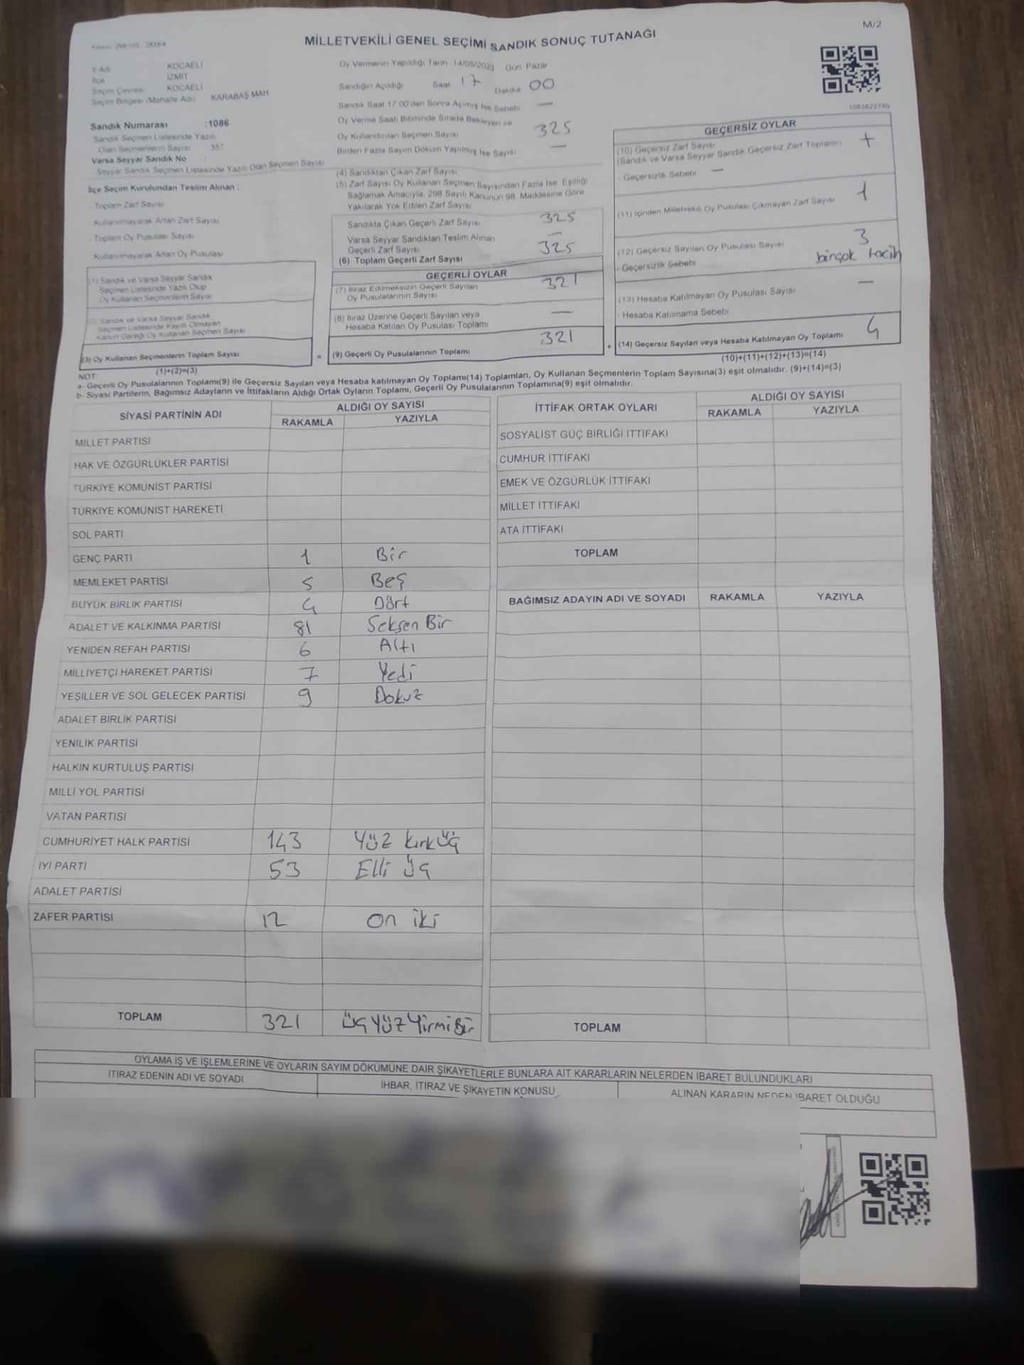 M/2
MİLLETVEKİLİ GENEL SEÇİMİ SANDIK SONUÇ TUTANAĞI
KOCAELİ
İZMİT
KOCAELİ
Seçim Bölgesi (Mahalle Adı) KARABAŞ MAH
Sandık Numarası :1086
Sandık Seçmen Listesinde Yazılı
Olan Seçmenlerin Sayısı
Varsa Seyyar Sandık No
Seyyar Seçmen Listesinde Yazılı Olan Seçmen Sayısı
İlçe Seçim Kurulundan Teslim Alınan :
Toplam Zarf Sayısı
Kullanılmayarak Artan Zarf Sayısı
Toplam Oy Pusulası Sayısı
Kullanılmayarak Artan Oy Pusulası
(1) Sandık ve Varsa Seyyar Sandık
Seçmen Listesinde Yazılı Olup
Oy Kullanan Seçmenlerin Sayısı
(3) Oy Kullanan Seçmenlerin Toplam Sayısı
(1)+(2)=(3)
Oy Vermenin Yapıldığı Tarih :14/05/2023 Gün Pazar
Sandığın Açıldığı Saat 17 Dakika 00
Sandık Saat 17:00'den Sonra Açılmış İse Sebebi —
Oy Verme Saati Bitiminde Sırada Bekleyen ve
Oy Kullandırılan Seçmen Sayısı 325
Birden Fazla Sayım Döküm Yapılmış İse Sayısı —
(4) Sandıktan Çıkan Zarf Sayısı
(5) Zarf Sayısı Oy Kullanan Seçmen Sayısından Fazla İse, Eşitliği
Sağlamak Amacıyla, 298 Sayılı Kanunun 98. Maddesine Göre
Yakılarak Yok Edilen Zarf Sayısı
Sandıkta Çıkan Geçerli Zarf Sayısı 325
Varsa Seyyar Sandıktan Teslim Alınan
Geçerli Zarf Sayısı —
(6) Toplam Geçerli Zarf Sayısı 325
GEÇERLİ OYLAR
(7) İtiraz Edilmeksizin Geçerli Sayılan
Oy Pusulalarının Sayısı 321
(8) İtiraz Üzerine Geçerli Sayılan veya
Hesaba Katılan Oy Pusulası Toplamı —
(9) Geçerli Oy Pusulalarının Toplamı 321
GEÇERSİZ OYLAR
(10) Geçersiz Zarf Sayısı
(Sandık ve Varsa Seyyar Sandık Geçersiz Zarf Toplamı)
- Geçersizlik Sebebi —
(11) İçinden Milletvekili Oy Pusulası Çıkmayan Zarf Sayısı 1
(12) Geçersiz Sayılan Oy Pusulası Sayısı 3
- Geçersizlik Sebebi birçok tercih
(13) Hesaba Katılmayan Oy Pusulası Sayısı —
- Hesaba Katılmama Sebebi
(14) Geçersiz Sayılan veya Hesaba Katılmayan Oy Toplamı 4
(10)+(11)+(12)+(13)=(14)
NOT:
a- Geçerli Oy Pusulalarının Toplamı(9) ile Geçersiz Sayılan veya Hesaba katılmayan Oy Toplamı(14) Toplamları, Oy Kullanan Seçmenlerin Toplam Sayısına(3) eşit olmalıdır. (9)+(14)=(3)
b- Siyasi Partilerin, Bağımsız Adayların ve İttifakların Aldığı Ortak Oyların Toplamı, Geçerli Oy Pusulalarının Toplamına(9) eşit olmalıdır.
SİYASİ PARTİNİN ADI ALDIĞI OY SAYISI
RAKAMLA YAZIYLA
MİLLET PARTİSİ
HAK VE ÖZGÜRLÜKLER PARTİSİ
TÜRKİYE KOMÜNİST PARTİSİ
TÜRKİYE KOMÜNİST HAREKETİ
SOL PARTİ
GENÇ PARTİ 1 Bir
MEMLEKET PARTİSİ 5 Beş
BÜYÜK BİRLİK PARTİSİ 4 Dört
ADALET VE KALKINMA PARTİSİ 81 Seksen Bir
YENİDEN REFAH PARTİSİ 6 Altı
MİLLİYETÇİ HAREKET PARTİSİ 7 Yedi
YEŞİLLER VE SOL GELECEK PARTİSİ 9 Dokuz
ADALET BİRLİK PARTİSİ
YENİLİK PARTİSİ
HALKIN KURTULUŞ PARTİSİ
MİLLİ YOL PARTİSİ
VATAN PARTİSİ
CUMHURİYET HALK PARTİSİ 143 Yüz kırk üç
İYİ PARTİ 53 Elli üç
ADALET PARTİSİ
ZAFER PARTİSİ 12 on iki
TOPLAM 321 üç yüz Yirmi Bir
İTTİFAK ORTAK OYLARI ALDIĞI OY SAYISI
RAKAMLA YAZIYLA
SOSYALİST GÜÇ BİRLİĞİ İTTİFAKI
CUMHUR İTTİFAKI
EMEK VE ÖZGÜRLÜK İTTİFAKI
MİLLET İTTİFAKI
ATA İTTİFAKI
TOPLAM
BAĞIMSIZ ADAYIN ADI VE SOYADI RAKAMLA YAZIYLA
TOPLAM
OYLAMA İŞ VE İŞLEMLERİNE VE OYLARIN SAYIM DÖKÜMÜNE DAİR ŞİKAYETLERLE BUNLARA AİT KARARLARIN NELERDEN İBARET BULUNDUKLARI
İTİRAZ EDENİN ADI VE SOYADI İHBAR, İTİRAZ VE ŞİKAYETİN KONUSU ALINAN KARARIN NEDEN İBARET OLDUĞU